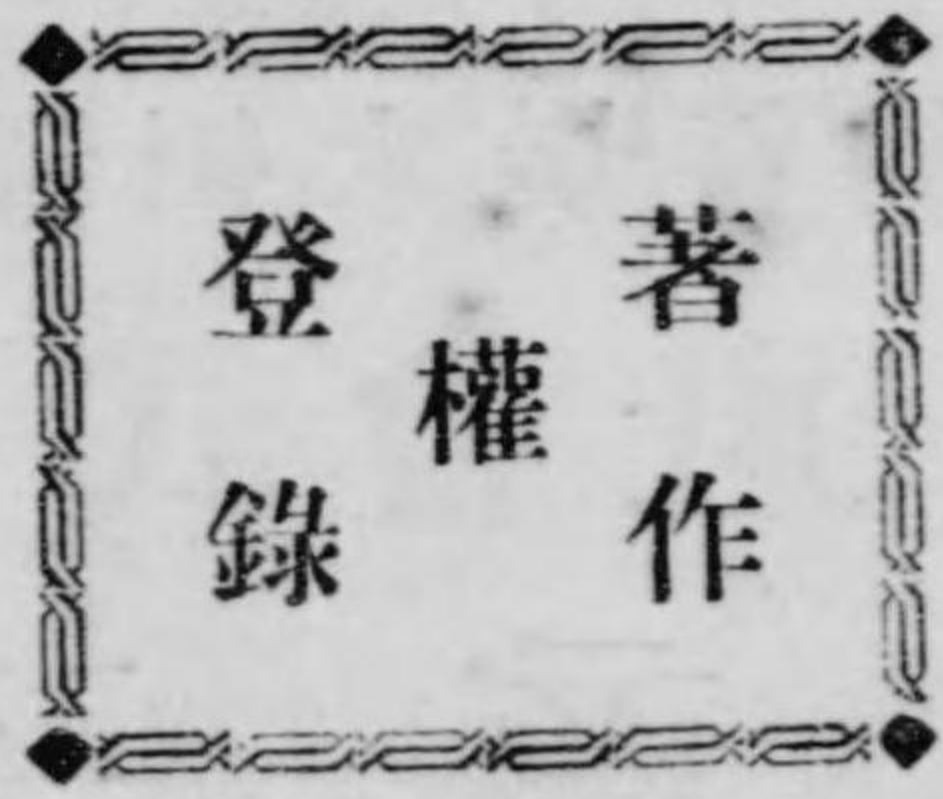 著作
權
登錄